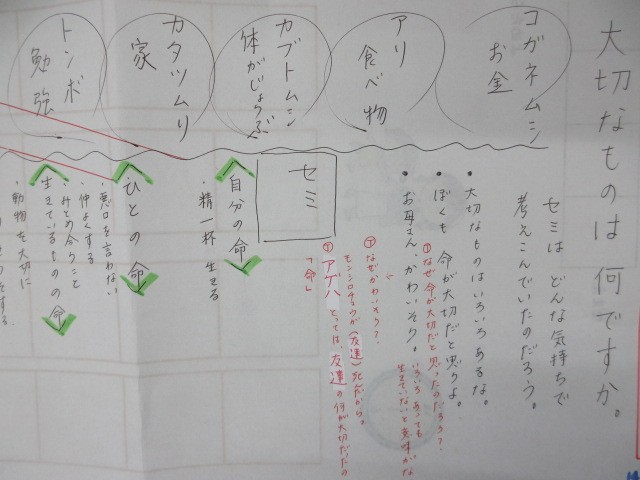 大切なものは何ですか。
コガネムシ
お金
アリ
食べ物
カブトムシ
体がじょうぶ
カタツムリ
家
トンボ
勉強
セミは どんな気持ちで
考えこんでいたのだろう。
・大切なものはいろいろあるな。
・ぼくも 命が大切だと思うよ。
①なぜ命が大切だと思ったのだろう?
いろいろあっても
生きていないと意味がな
・お母さん、かわいそう。
②なぜかわいそう?
モンシロチョウが(友達)死んだから。
③アゲハ とっては、友達の何が大切だったの
「命」
セミ
自分の命
・精一杯 生きる
ひとの命
・悪口を言わない
・仲よくする
・みとめ合うこと
生きているものの命
・動物を大切に